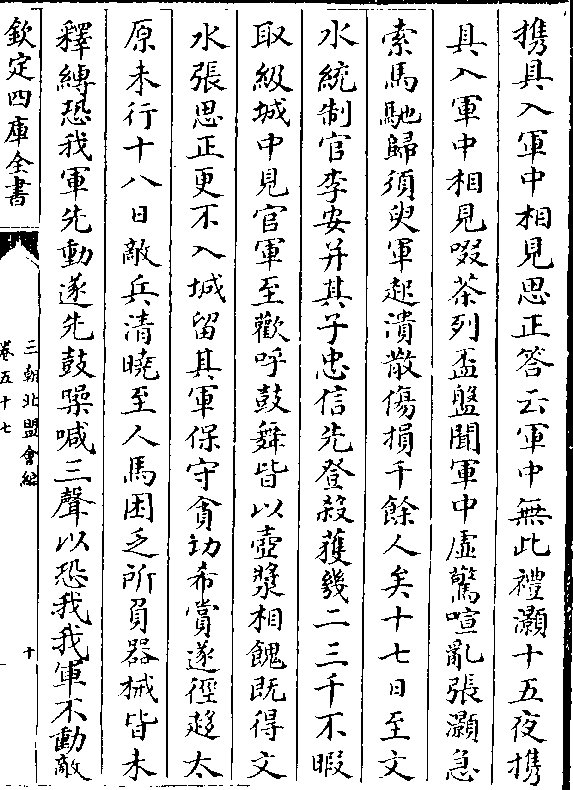 携具入軍中相見思正答云軍中無此禮灝十五夜携
具入軍中相見啜茶列盃盤聞軍中虛驚喧亂張灝急
索馬馳歸須臾軍起潰散傷損千餘人矣十七日至文
水統制官李安并其子忠信先登殺獲幾二三千不暇
取級城中見官軍至歡呼鼓舞皆以壺漿相餽既得文
水張思正更不入城留其軍保守貪功希賞遂徑趍太
原未行十八日敵兵清曉至人馬困乏所負器械皆未
釋縛恐我軍先動遂先鼓譟喊三聲以恐我我軍不動敵
欽定四庫全書
三朝北盟會編
卷五十七
十